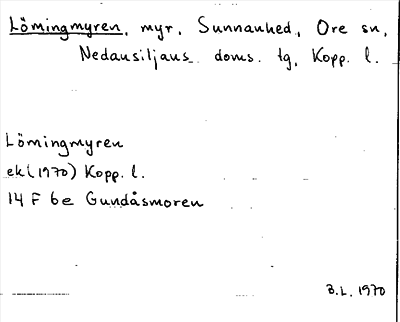 Lömingmyren, myr, Sunnanhed, Ore sn,
Nedansiljans doms. tg, Kopp. l.
Lömingmyren
ek (1970) Kopp. l.
14 F 6e Gundåsmoren
B.L. 1970